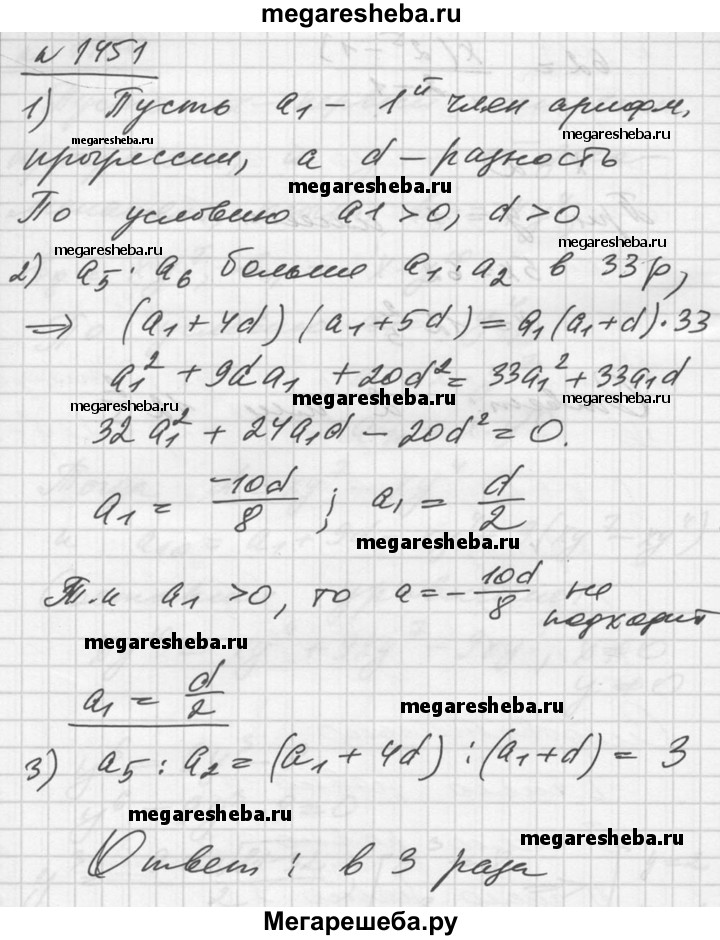 megaresheba.ru
N 1451
1) Пусть a₁ – 1ый член арифм.
megaresheba.ru
megaresheba.ru
прогрессии, а d – разность
megaresheba.ru
По условию a1 > 0, d > 0
megaresheba.ru
megaresheba.ru
2) a₅ · a₆ больше a₁ · a₂ в 33 р,
⇒ (a₁ + 4d) (a₁ + 5d) = a₁ (a₁ + d) · 33
a₁² + 9da₁ + 20d² = 33a₁² + 33a₁d
megaresheba.ru
megaresheba.ru
megaresheba.ru
32a₁² + 24a₁d – 20d² = 0.
a₁ = -10d/8 ; a₁ = d/2
megaresheba.ru
Т.к a₁ > 0, то a = - 10d/8 не подходит
megaresheba.ru
a₁ = d/2
megaresheba.ru
3) a₅ : a₂ = (a₁ + 4d) : (a₁ + d) = 3
megaresheba.ru
megaresheba.ru
Ответ: в 3 раза
Мегарешеба.ру